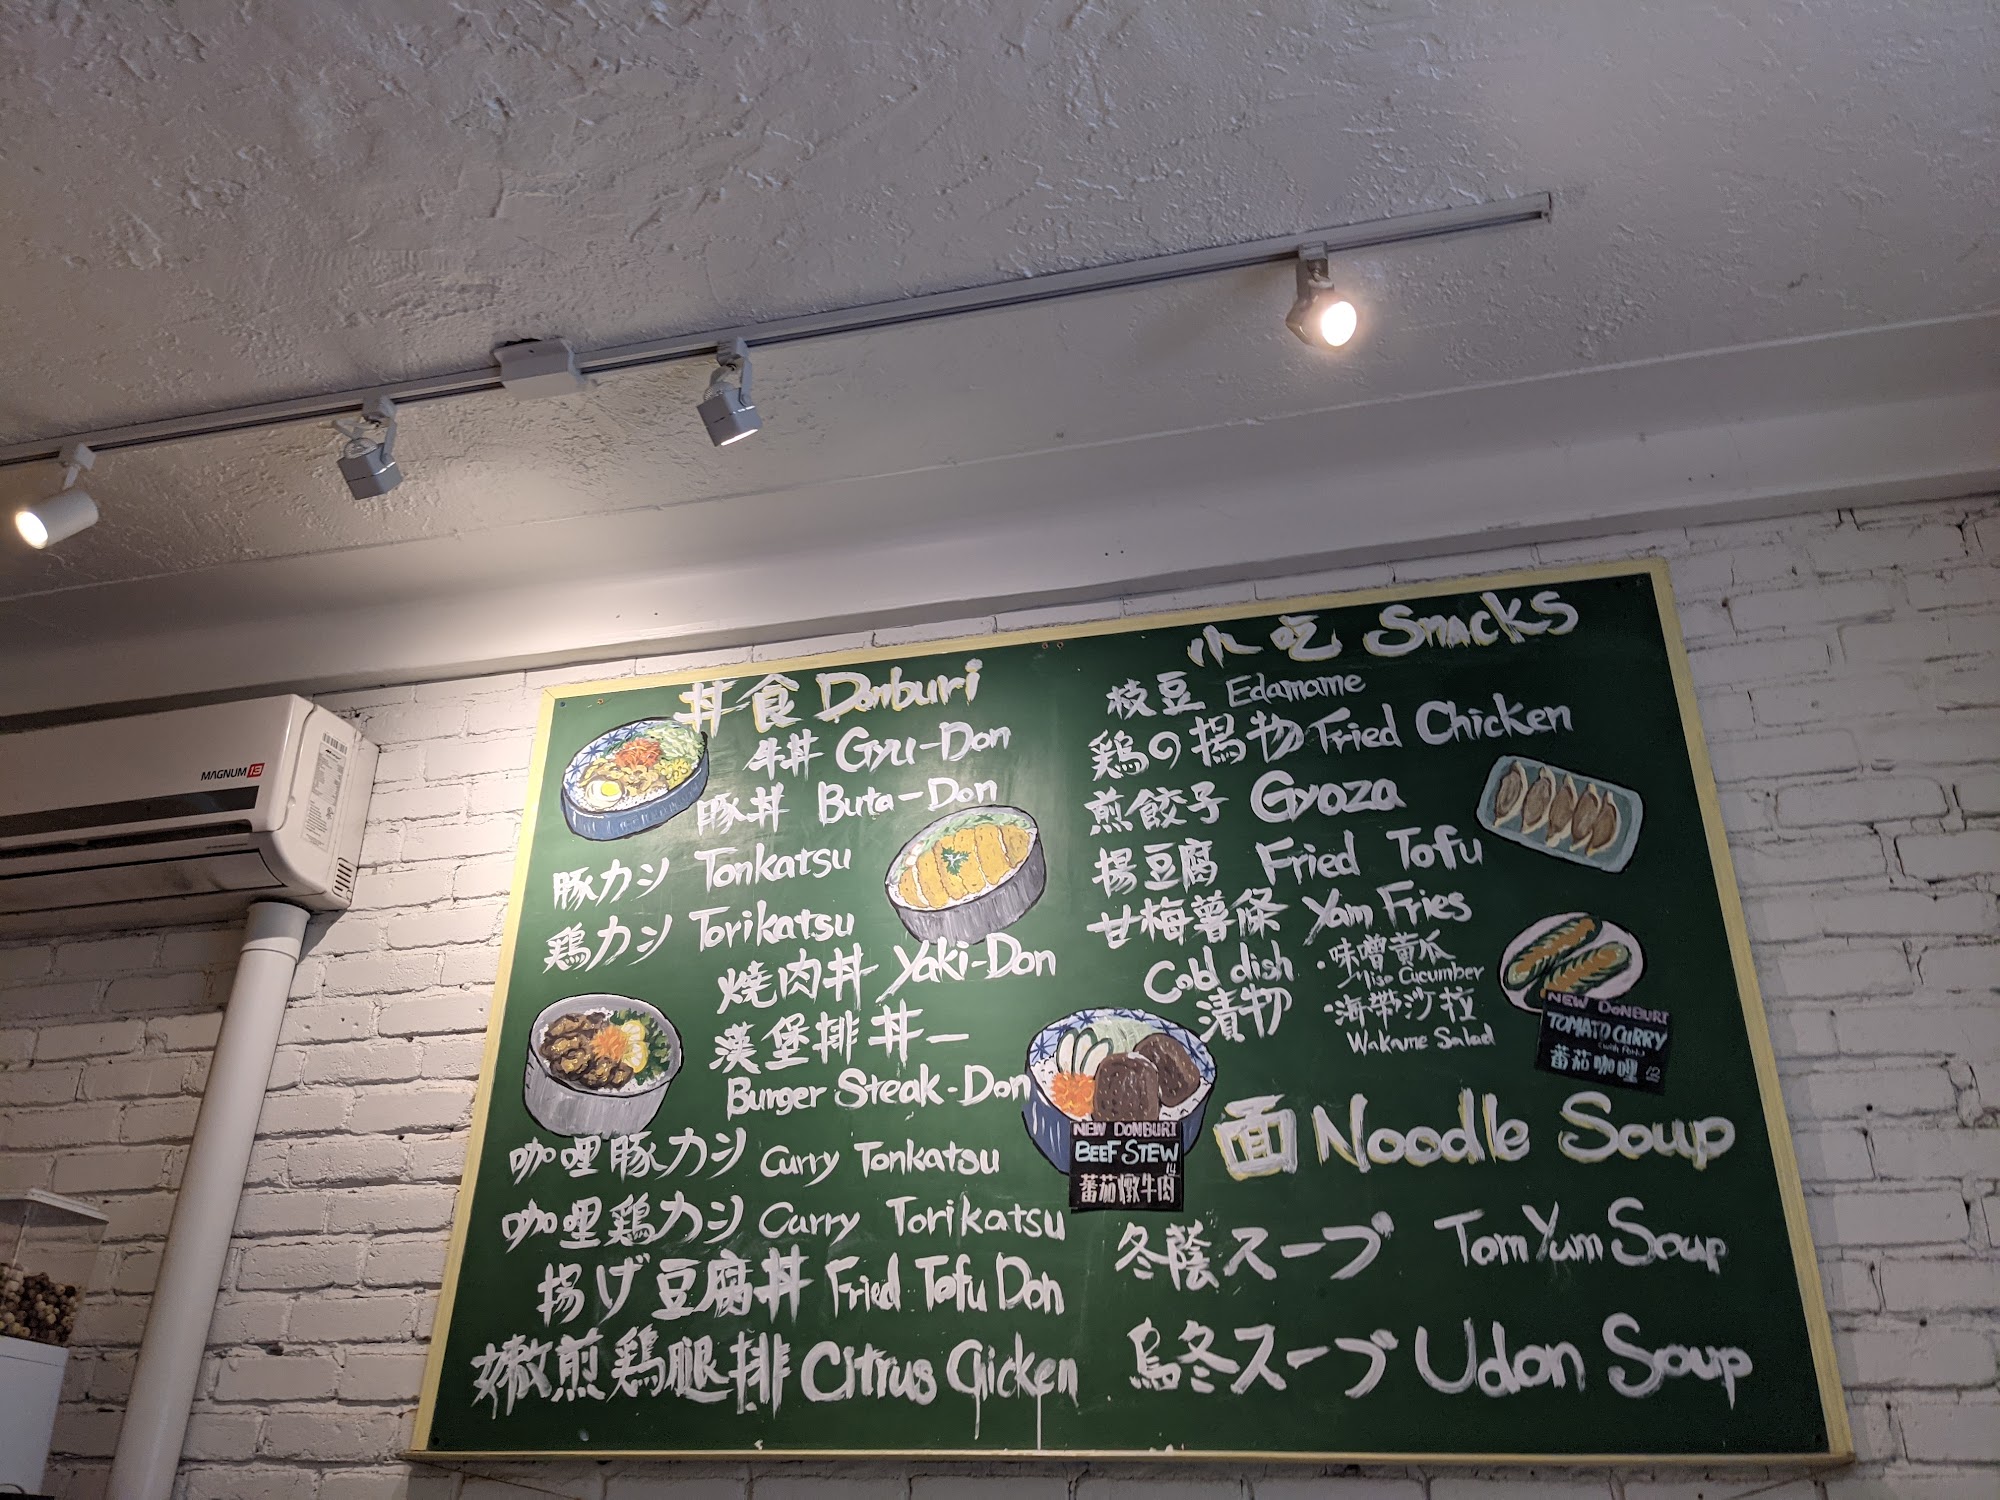 MAGNUM 13
丼食 Donburi
牛丼 Gyu-Don
豚丼 Buta-Don
豚カシ Tonkatsu
鶏カシ Torikatsu
燒肉丼 Yaki-Don
漢堡排丼ー
Burger Steak-Don
咖哩豚カシ Curry Tonkatsu
咖哩鶏カシ Curry Torikatsu
揚げ豆腐丼 Fried Tofu Don
嫩煎鶏腿排 Citrus Chicken
小吃 Snacks
枝豆 Edamame
鶏の揚物 Fried Chicken
煎餃子 Gyoza
揚豆腐 Fried Tofu
甘梅薯條 Yam Fries
Cold dish
漬物
・味噌黄瓜
Miso Cucumber
・海带沙拉
Wakame Salad
NEW DONBURI
TOMATO CURRY
(with Pork)
蕃茄咖哩 12
NEW DONBURI
BEEF STEW
14
蕃茄燉牛肉
面 Noodle Soup
冬蔭スープ Tom Yum Soup
烏冬スープ Udon Soup